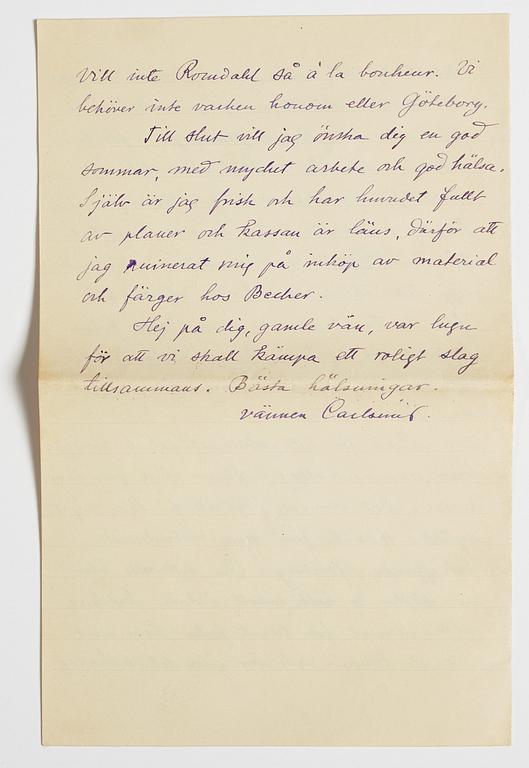 Vill inte Romdahl så à la bonheur. Vi
behöver inte varken honom eller Göteborg.
Till slut vill jag önska dig en god
sommar, med mycket arbete och god hälsa.
Själv är jag frisk och har huvudet fullt
av planer och kassan är läns, därför att
jag ruinerat mig på inköp av material
och färger hos Becker.
Hej på dig, gamle vän, var lugn
för att vi skall kämpa ett roligt slag
tillsammans. Bästa hälsningar.
vännen